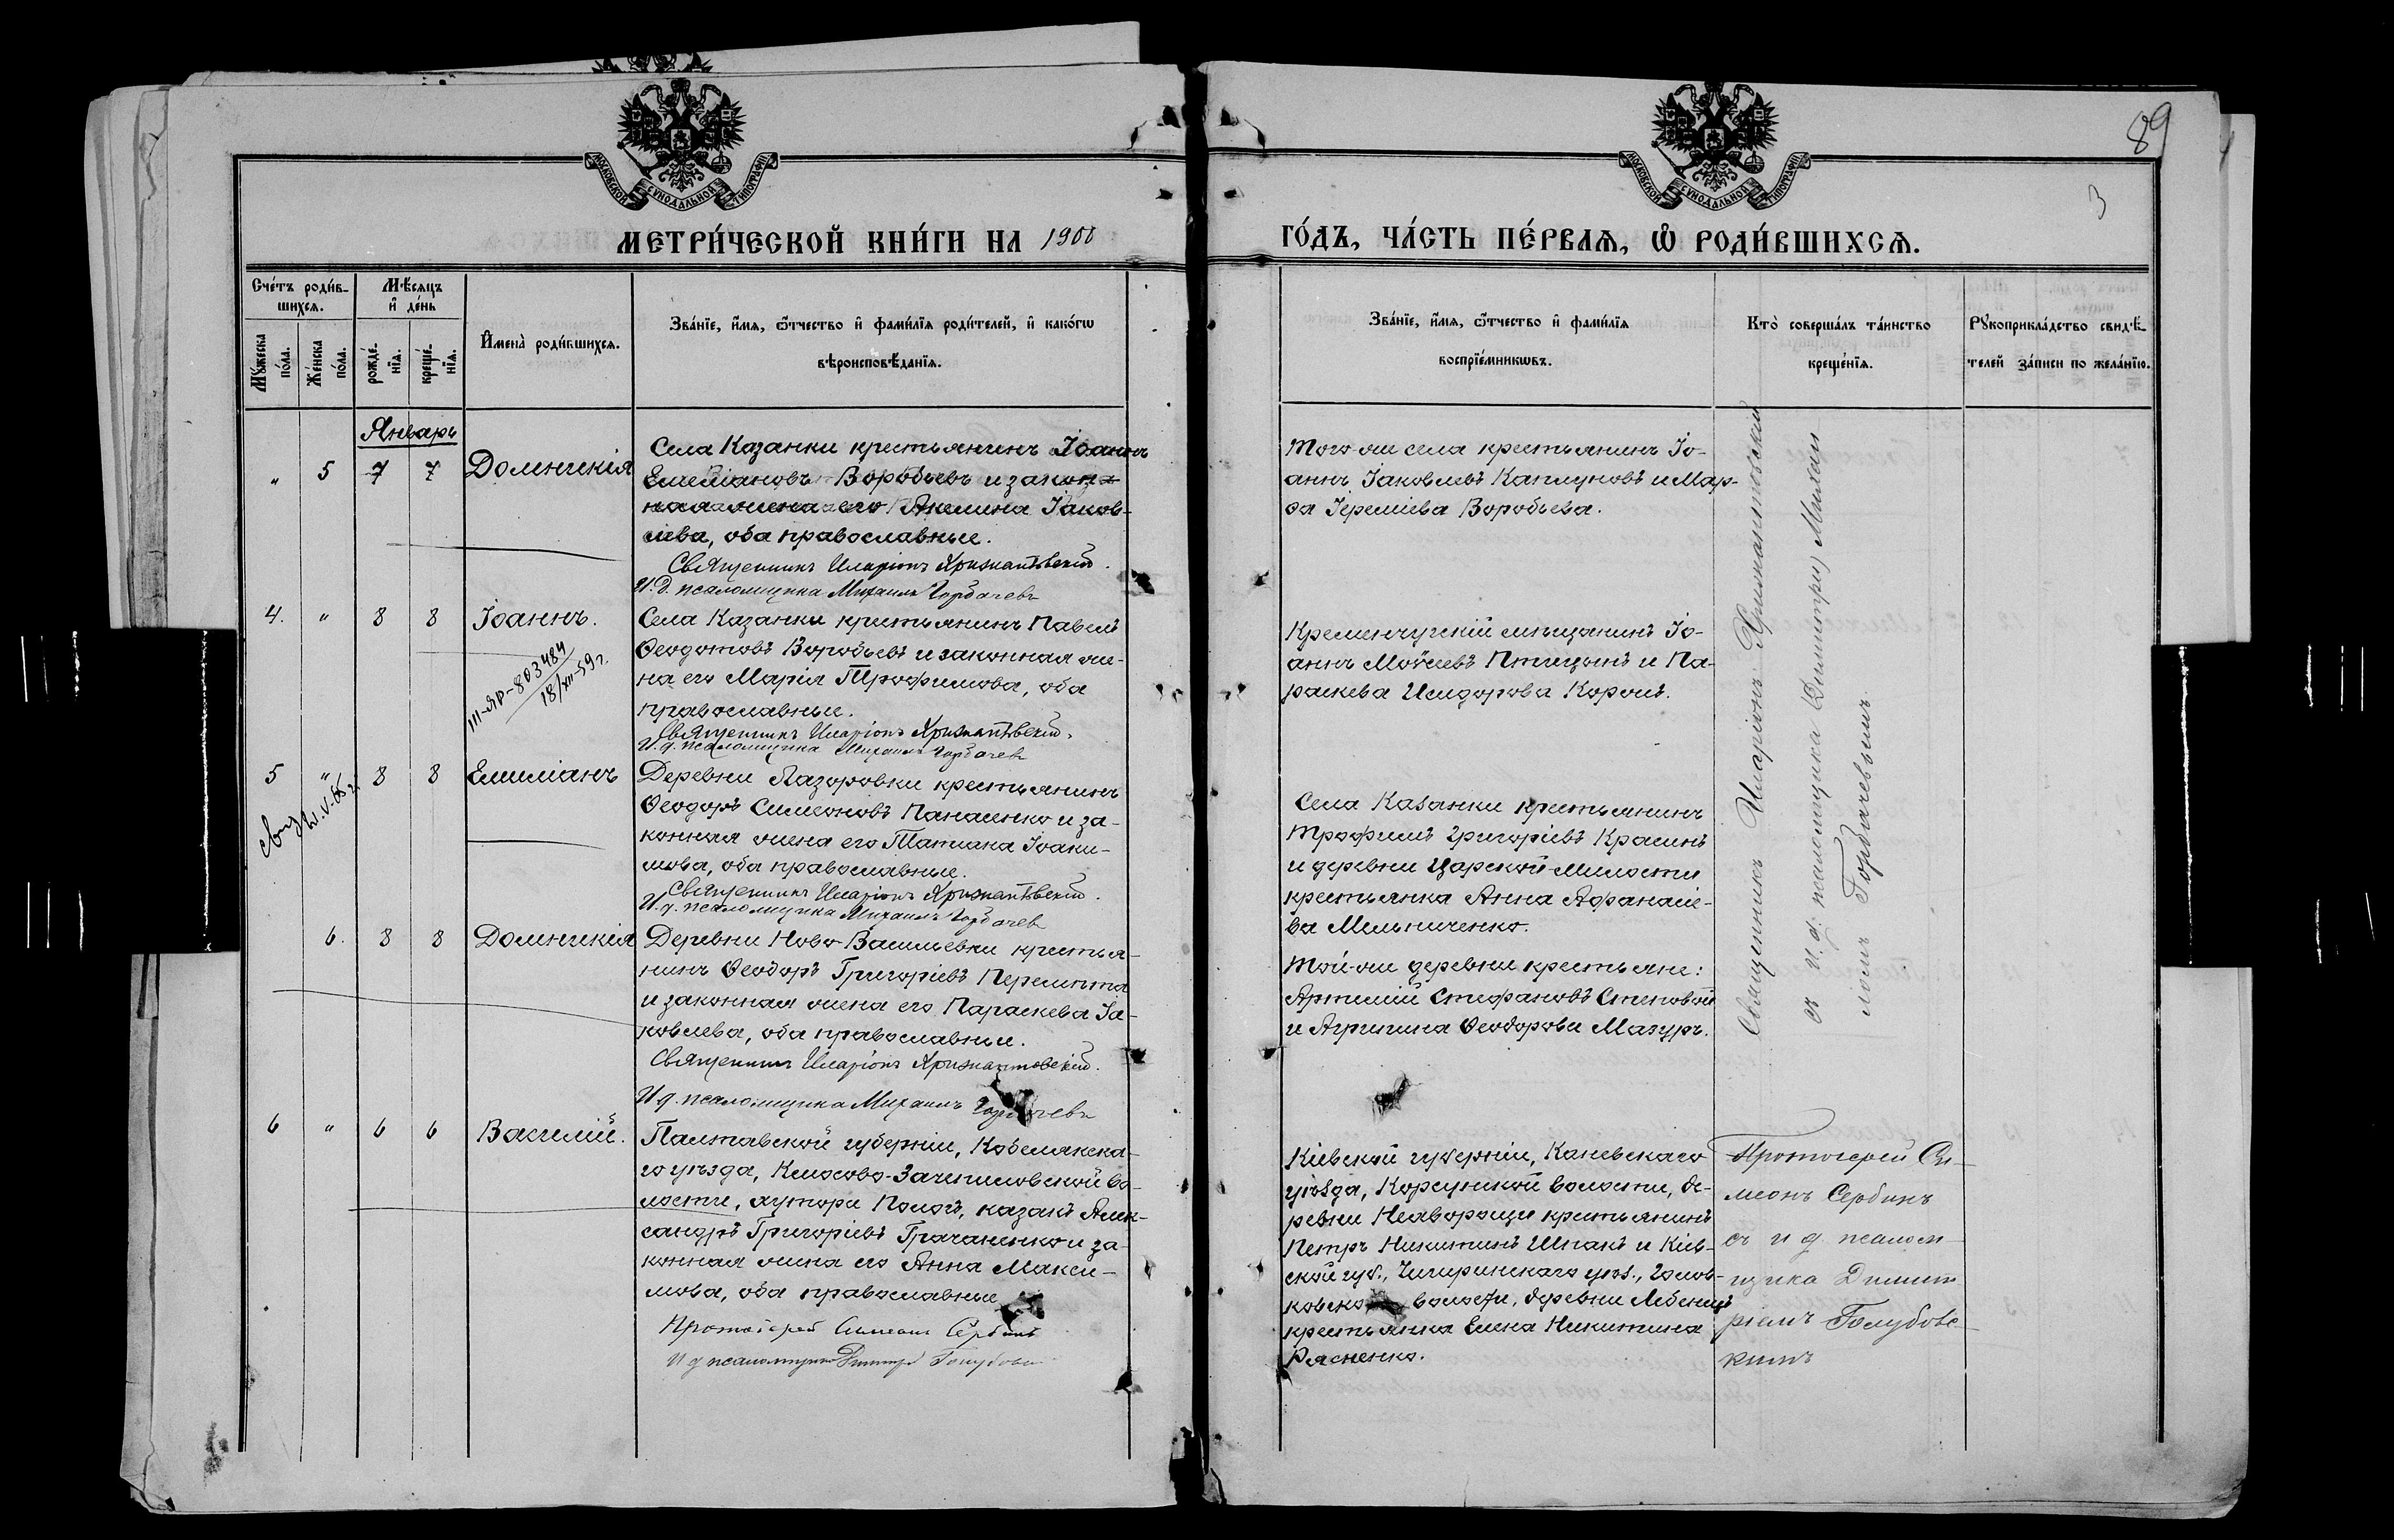 89
3
МОСКОВСКОЙ СѴНОДАЛЬНОЙ ТИПОГРАФІИ
МОСКОВСКОЙ СѴНОДАЛЬНОЙ ТИПОГРАФІИ
МЕТРИ́ЧЕСКОЙ КНИ́ГИ НА 1900
ГО́ДЪ, ЧА́СТЬ ПЕ́РВАѦ, Ѽ РОДИ́ВШИХСѦ.
Сче́тъ роди́в-
шихсѧ.
Му́жеска по́ла.
Же́нска по́ла.
Мѣ́сѧцъ
и҆ де́нь
рожде́-
нїѧ.
креще́-
нїѧ.
И҆мена̀ роди́вшихсѧ.
Зва́нїе, и҆́мѧ, ѻ҆́тчество и҆ фами́лїѧ роди́телей, и҆ како́гѡ
вѣроисповѣ́данїѧ.
Зва́нїе, и҆́мѧ, ѻ҆́тчество и҆ фами́лїѧ
воспрїе́мникѡвъ.
Кто̀ соверша́лъ та́инство
креще́нїѧ.
Рꙋкоприкла́дство свидѣ́-
телей за́писи по жела́нїю.
Январь
" 5 7 7 Домникія
Села Казанки крестьянинъ Іоаннъ
Емеліановъ Воробьевъ и закон-
ная жена его Акилина Іаков-
лева, оба православные.
Священникъ Иларіонъ Хризантовскій.
И.д. псаломщика Михаилъ Горбачевъ
Того-же села крестьянинъ Іо-
аннъ Іаковлевъ Каплуновъ и Мар-
ѳа Іереміева Воробьева.
4. " 8 8 Іоаннъ.
III-ЯР-803484
18/XII-59 г.
Села Казанки крестьянинъ Павелъ
Ѳеодотовъ Воробьевъ и законная же-
на его Марія Трофимова, оба
православные.
Священникъ Иларіонъ Хризантовскій.
И.д. псаломщика Михаилъ Горбачевъ
Кременчугскій мѣщанинъ Іо-
аннъ Моѵсеевъ Птицынъ и Па-
раскева Исидорова Король.
5 " 8 8 Емиліанъ
Деревни Лазоровки крестьянинъ
Ѳеодоръ Симеоновъ Панасенко и за-
конная жена его Татіана Іоаки-
мова, оба православные.
Священникъ Иларіонъ Хризантовскій.
И.д. псаломщика Михаилъ Горбачевъ
Села Казанки крестьянинъ
Трофимъ Григоріевъ Красинъ
и деревни Царской-Милости
крестьянка Анна Афанасіе-
ва Мельниченко.
6. 8 8 Домникія
Деревни Ново-Васильевки крестья-
нинъ Ѳеодоръ Григоріевъ Перемота
и законная жена его Параскева Іа-
ковлева, оба православные.
Священникъ Иларіонъ Хризантовскій.
И.д. псаломщика Михаилъ Горбачевъ
Той-же деревни крестьяне:
Артемій Стефановъ Степовой
и Агрипина Ѳеодорова Мазуръ.
Священникъ Иларіонъ Хризантовскій
съ и.д. псаломщика Михаи-
ломъ Горбачевымъ.
6 " 6 6 Василій.
Полтавской губерніи, Кобелякска-
го уѣзда, Кишово-Зачепиловской во-
лости, хутора казакъ Алек-
сандръ Григоріевъ и за-
конная жена его Анна Макси-
мова, оба православные
Протоіерей Симеонъ Сербинъ
И д псаломщика Дмитрій Голубовс
Кіевской губерніи, Каневскаго
уѣзда, Корсунской волости, де-
ревни крестьянинъ
Петръ Никитинъ Шпакъ и Кіев-
ской губ., Чигиринскаго уѣз., Голов-
ковско волости, деревни
крестьянка Елена Никитина
Рясненко.
Протоіерей Си-
меонъ Сербинъ
съ и д псалом-
щика Димит
ріемъ Голубовс-
кимъ